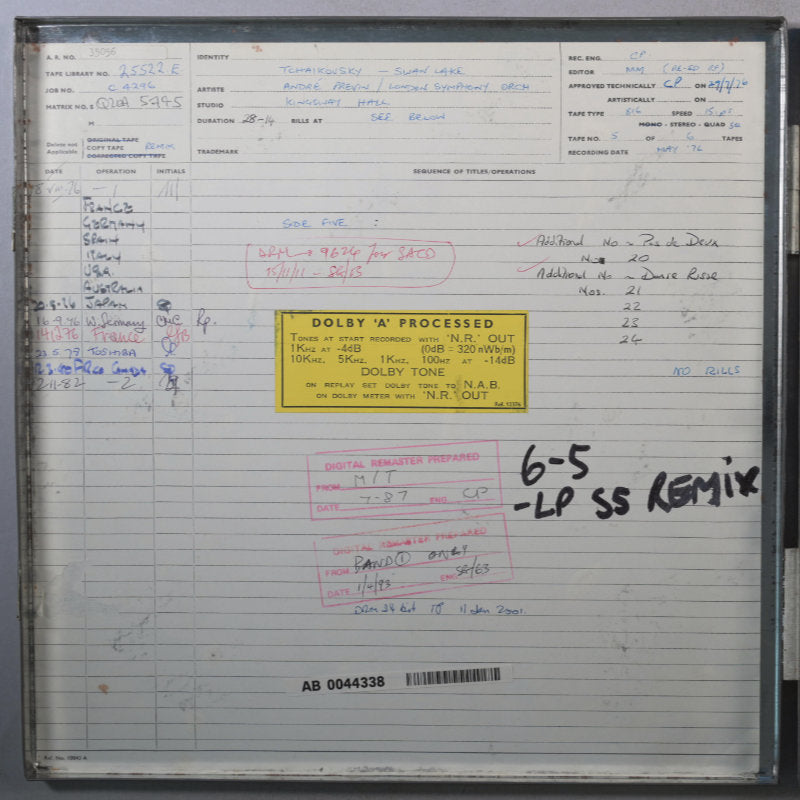 A. R. NO. 35056
TAPE LIBRARY NO. 25522 E
JOB NO. C 4296
MATRIX NO. S
M
Delete not Applicable
ORIGINAL TAPE
COPY TAPE REMIX
CORRECTED COPY TAPE
IDENTITY TCHAIKOVSKY — SWAN LAKE
ARTISTE ANDRÉ PREVIN / LONDON SYMPHONY ORCH
STUDIO KINGSWAY HALL
DURATION 28-14 RILLS AT SEE BELOW
TRADEMARK
REC. ENG. CP.
EDITOR MM
APPROVED TECHNICALLY CP ON 29/7/76
ARTISTICALLY ON
TAPE TYPE 816 SPEED 15 ips
MONO - STEREO - QUAD
TAPE NO. 5 OF 6 TAPES
RECORDING DATE MAY '76
DATE OPERATION INITIALS SEQUENCE OF TITLES/OPERATIONS
— 1
FRANCE
GERMANY
SPAIN
ITALY
USA.
AUSTRALIA
JAPAN
16-9-76 W. Germany
141276 France
TOSHIBA
CANADA
12-11-82 — 2
SIDE FIVE :
DRM → 9624 for SACD
15/11/11 — SG/EB
Additional No ~ Pas de Deux
No. 20
Additional No ~ Danse Russe
Nos. 21
22
23
24
NO RILLS
DOLBY 'A' PROCESSED
TONES AT START RECORDED WITH 'N.R.' OUT
1KHZ AT -4dB (0dB = 320 nWb/m)
10KHZ, 5KHZ, 1KHZ, 100HZ AT -14dB
DOLBY TONE
ON REPLAY SET DOLBY TONE TO N.A.B.
ON DOLBY METER WITH 'N.R.' OUT
Ref. 12376
6-5
-LP S5 REMIX
DIGITAL REMASTER PREPARED
FROM M/T
DATE 7-87 ENG. CP
DIGITAL REMASTER PREPARED
FROM BAND ① ONLY
DATE 1/4/93 ENG SG/EB
DRM 24 bit 11 Jan 2001.
AB 0044338